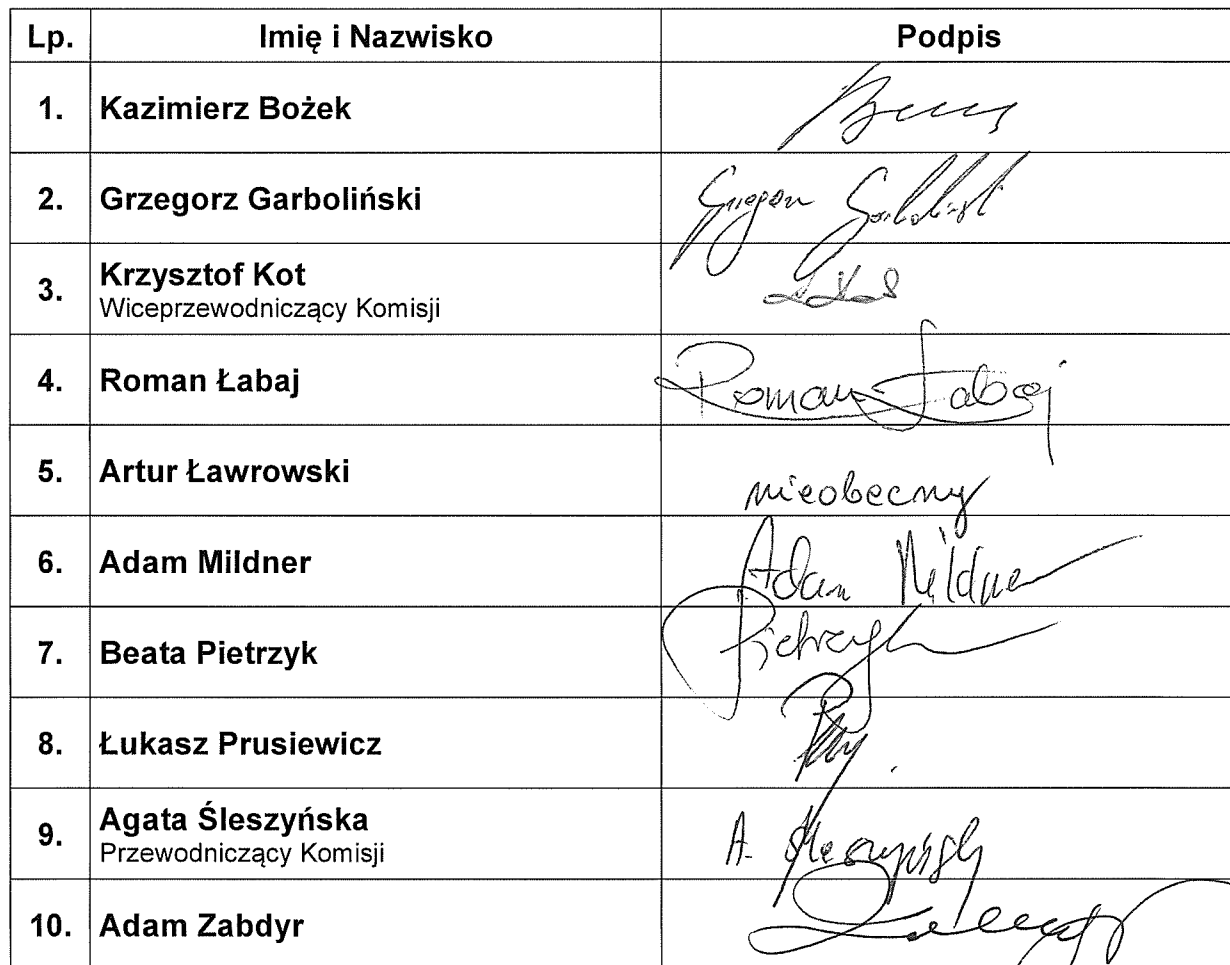 Lp. Imię i Nazwisko Podpis
1. Kazimierz Bożek
2. Grzegorz Garboliński
3. Krzysztof Kot
Wiceprzewodniczący Komisji
4. Roman Łabaj Roman Łabaj
5. Artur Ławrowski nieobecny
6. Adam Mildner Adam Mildner
7. Beata Pietrzyk Pietrzyk
8. Łukasz Prusiewicz
9. Agata Śleszyńska A. Śleszyńska
Przewodniczący Komisji
10. Adam Zabdyr